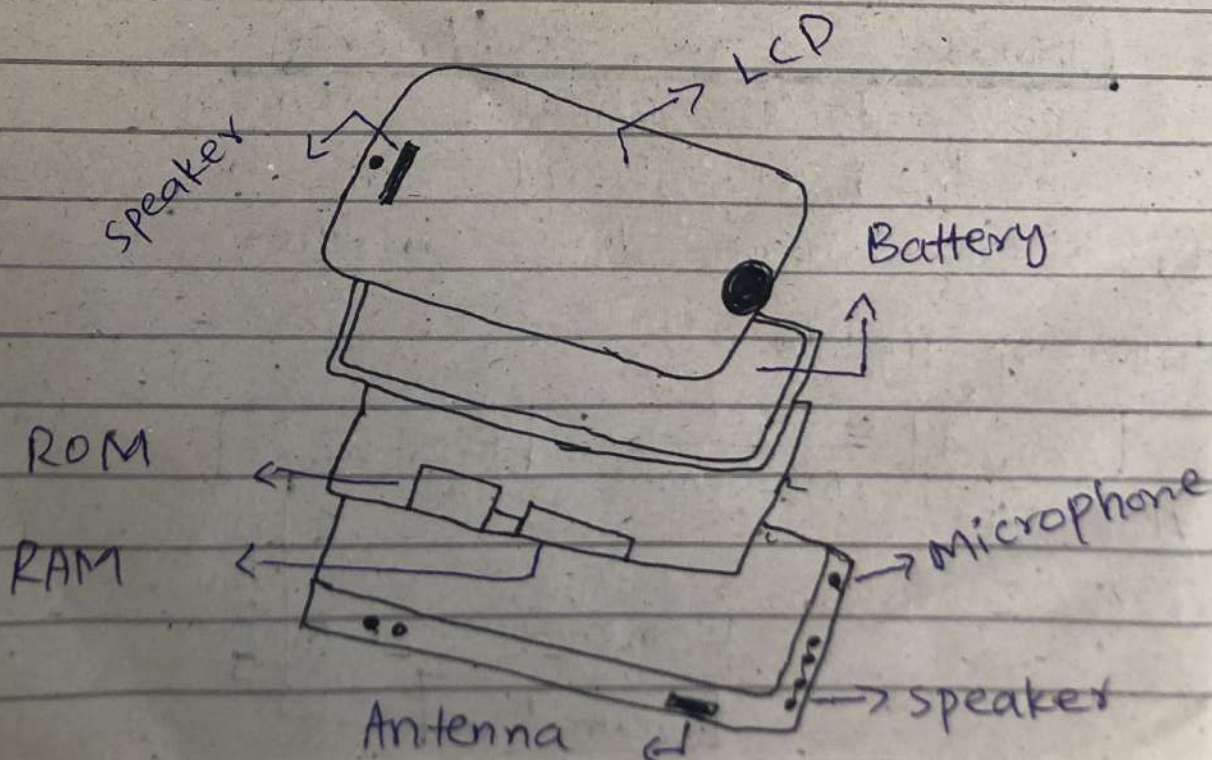 LCD
speaker
Battery
ROM
Microphone
RAM
speaker
Antenna